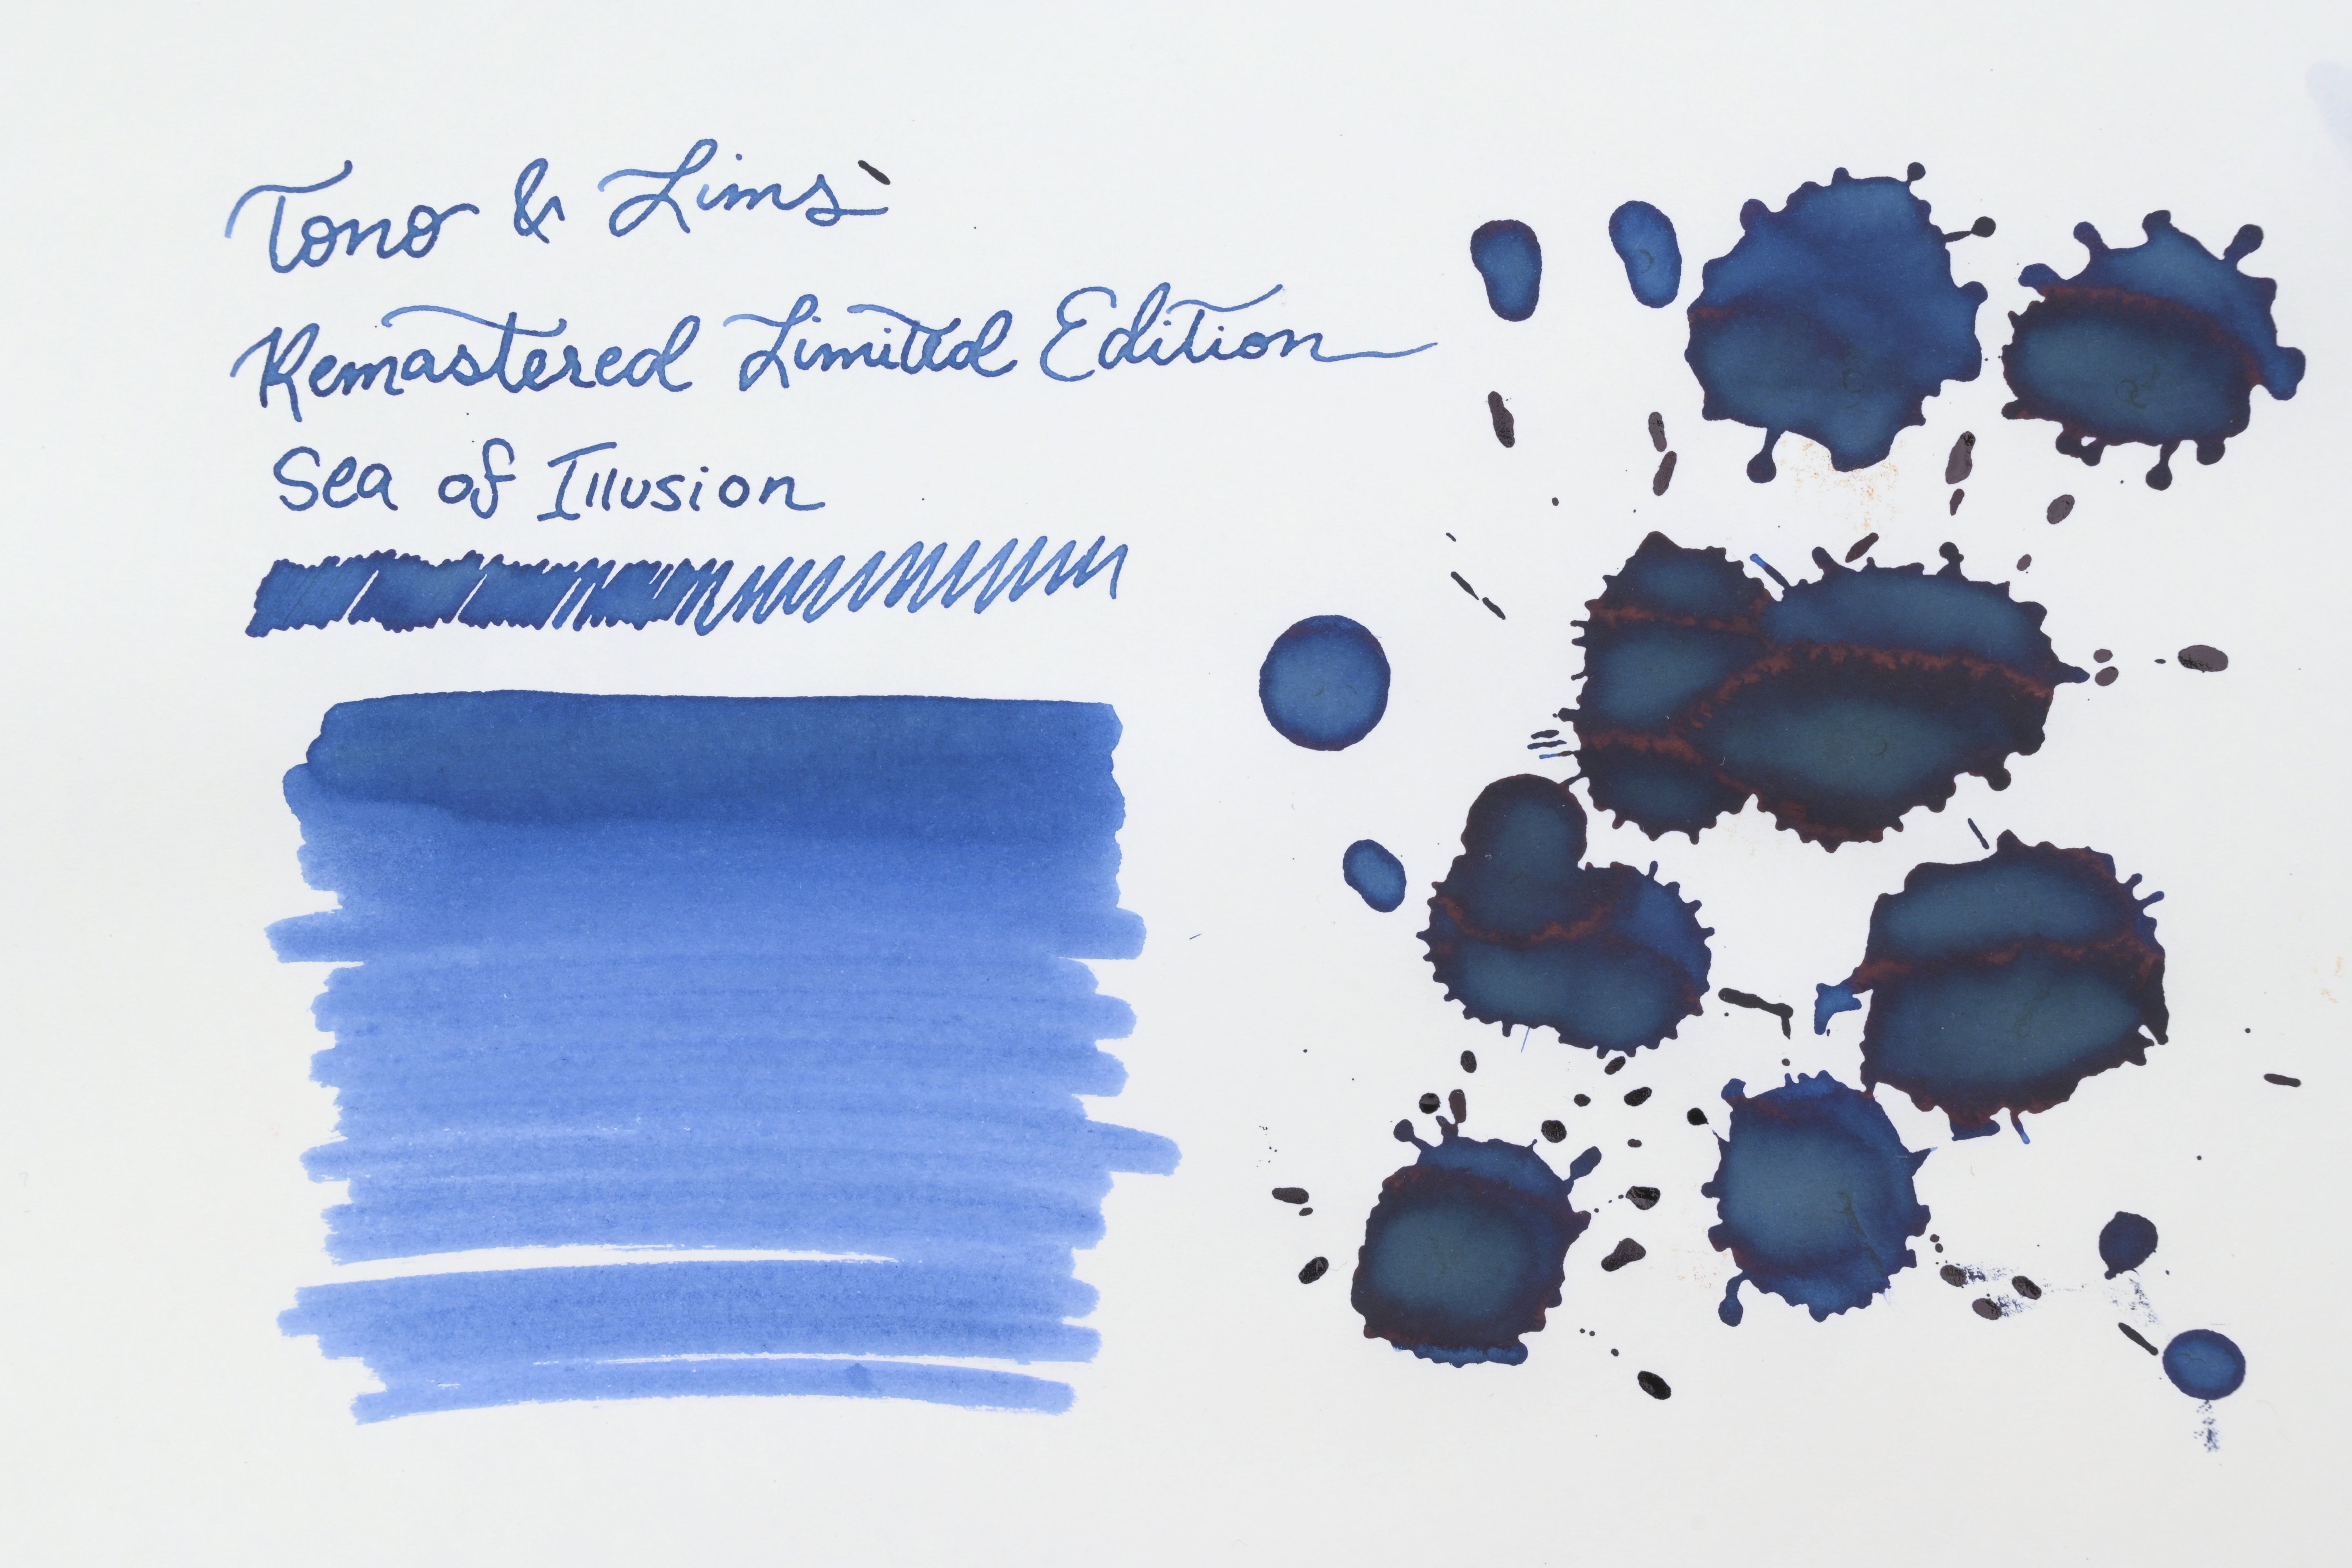 Tono & Lims
Remastered Limited Edition
Sea of Illusion